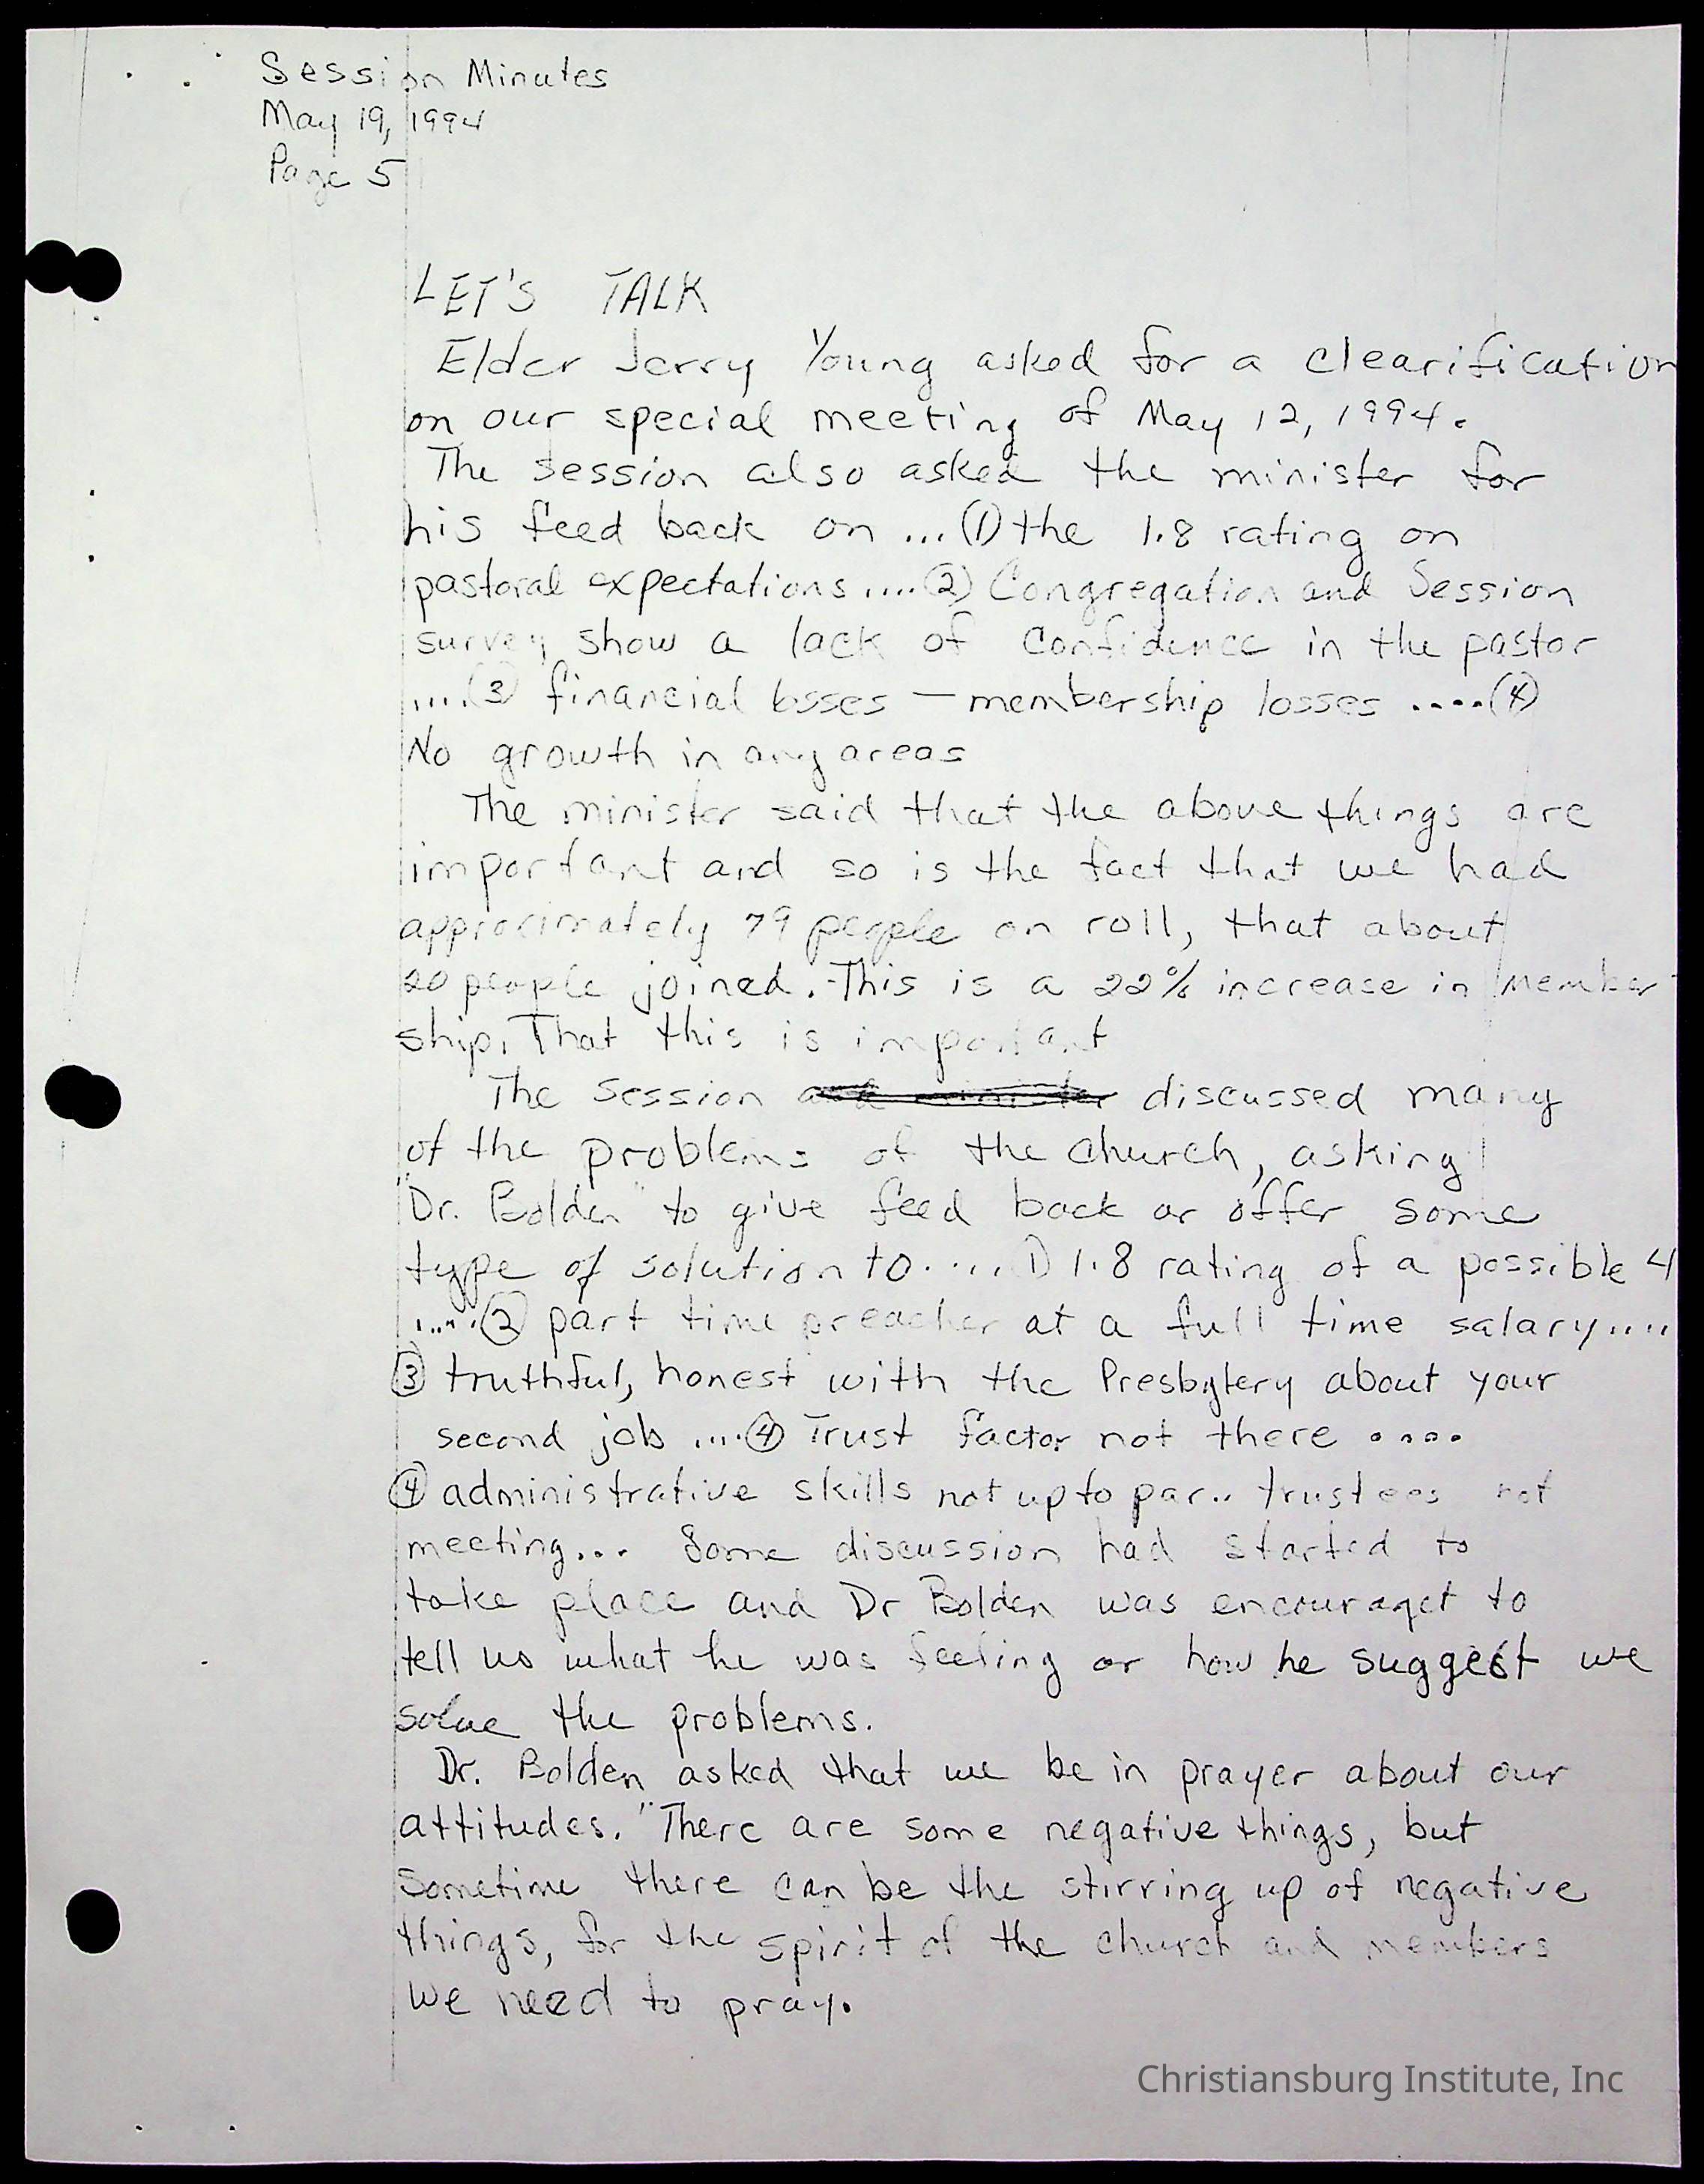 Session Minutes
May 19, 1994
Page 5
LET'S TALK
Elder Jerry Young asked for a clearification
on our special meeting of May 12, 1994.
The session also asked the minister for
his feed back on ... (1) the 1.8 rating on
pastoral expectations .... (2) Congregation and Session
survey show a lack of confidence in the pastor
.... (3) financial losses — membership losses .... (4)
No growth in any areas
The minister said that the above things are
important and so is the fact that we had
approximately 79 people on roll, that about
20 people joined. This is a 22% increase in member
ship. That this is important
The Session and minister discussed many
of the problems of the church, asking
"Dr. Bolden" to give feed back or offer some
type of solution to..... 1) 1.8 rating of a possible 4
..... (2) part time preacher at a full time salary....
(3) truthful, honest with the Presbytery about your
second job .... (4) Trust factor not there ....
(4) administrative skills not up to par.. trustees not
meeting... Some discussion had started to
take place and Dr Bolden was encouraget to
tell us what he was feeling or how he suggest we
solve the problems.
Dr. Bolden asked that we be in prayer about our
attitudes. "There are some negative things, but
Sometime there can be the stirring up of negative
things, for the spirit of the church and members
We need to pray.
Christiansburg Institute, Inc